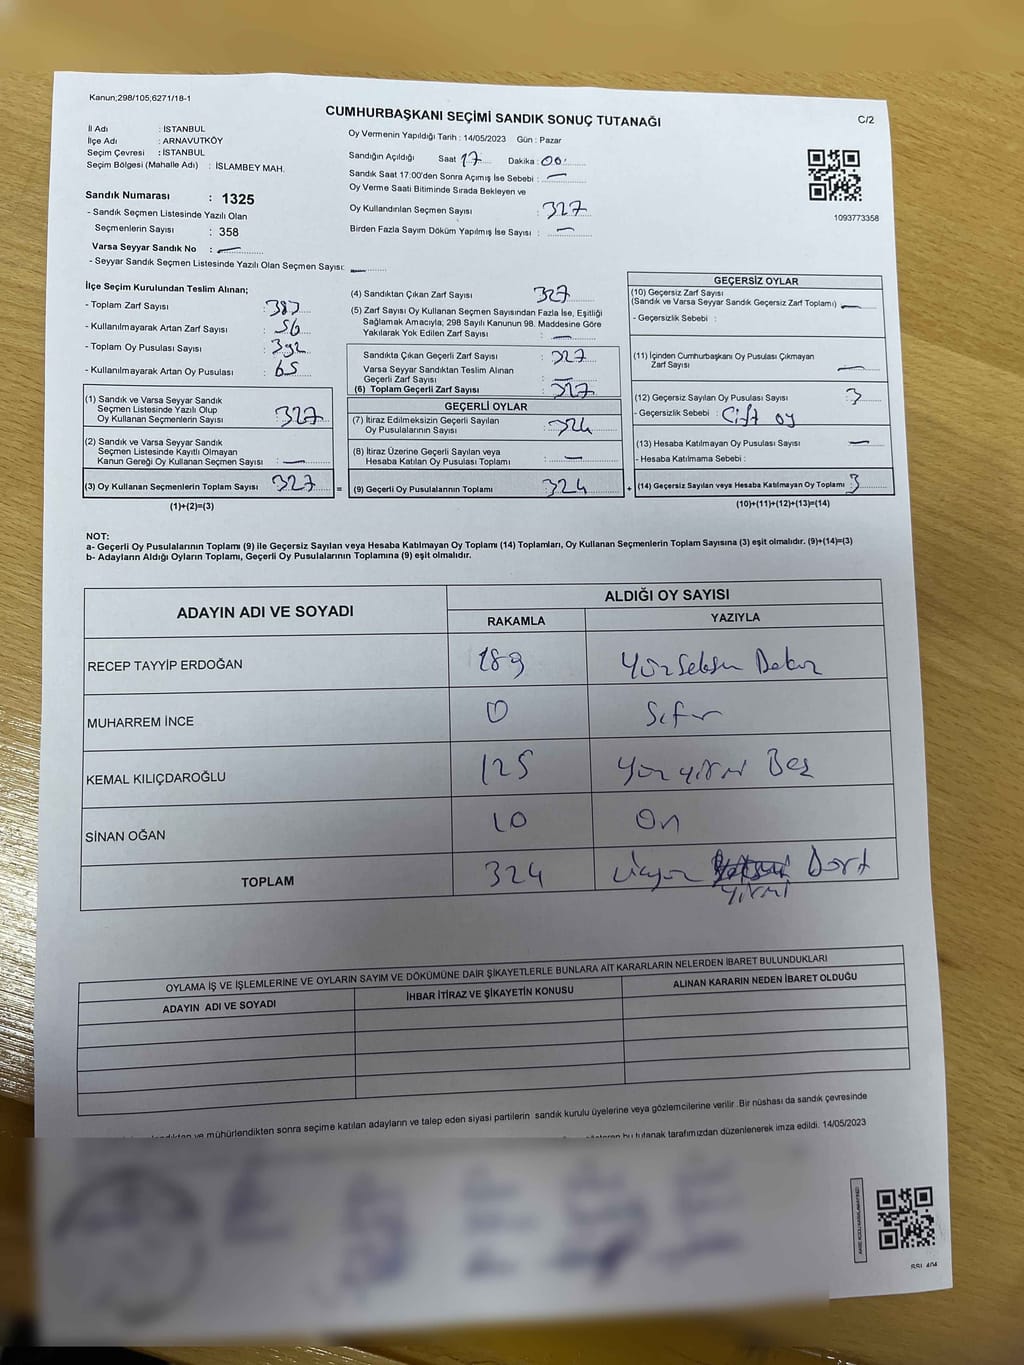 Kanun;298/105;6271/18-1
CUMHURBAŞKANI SEÇİMİ SANDIK SONUÇ TUTANAĞI
C/2
İl Adı : İSTANBUL
İlçe Adı : ARNAVUTKÖY
Seçim Çevresi : İSTANBUL
Seçim Bölgesi (Mahalle Adı) : İSLAMBEY MAH.
Sandık Numarası : 1325
- Sandık Seçmen Listesinde Yazılı Olan
Seçmenlerin Sayısı : 358
Varsa Seyyar Sandık No : —
- Seyyar Sandık Seçmen Listesinde Yazılı Olan Seçmen Sayısı: —
Oy Vermenin Yapıldığı Tarih : 14/05/2023 Gün : Pazar
Sandığın Açıldığı Saat 17 Dakika : 00
Sandık Saat 17:00'den Sonra Açımış İse Sebebi : —
Oy Verme Saati Bitiminde Sırada Bekleyen ve
Oy Kullandırılan Seçmen Sayısı : 327
Birden Fazla Sayım Döküm Yapılmış İse Sayısı : —
1093773358
İlçe Seçim Kurulundan Teslim Alınan;
- Toplam Zarf Sayısı : 383
- Kullanılmayarak Artan Zarf Sayısı : 56
- Toplam Oy Pusulası Sayısı : 392
- Kullanılmayarak Artan Oy Pusulası : 65
(1) Sandık ve Varsa Seyyar Sandık
Seçmen Listesinde Yazılı Olup
Oy Kullanan Seçmenlerin Sayısı : 327
(2) Sandık ve Varsa Seyyar Sandık
Seçmen Listesinde Kayıtlı Olmayan
Kanun Gereği Oy Kullanan Seçmen Sayısı : —
(3) Oy Kullanan Seçmenlerin Toplam Sayısı : 327
(1)+(2)=(3)
(4) Sandıktan Çıkan Zarf Sayısı : 327
(5) Zarf Sayısı Oy Kullanan Seçmen Sayısından Fazla İse, Eşitliği
Sağlamak Amacıyla; 298 Sayılı Kanunun 98. Maddesine Göre
Yakılarak Yok Edilen Zarf Sayısı : —
Sandıkta Çıkan Geçerli Zarf Sayısı : 327
Varsa Seyyar Sandıktan Teslim Alınan
Geçerli Zarf Sayısı : —
(6) Toplam Geçerli Zarf Sayısı : 327
GEÇERLİ OYLAR
(7) İtiraz Edilmeksizin Geçerli Sayılan
Oy Pusulalarının Sayısı : 324
(8) İtiraz Üzerine Geçerli Sayılan veya
Hesaba Katılan Oy Pusulası Toplamı : —
= (9) Geçerli Oy Pusulalarının Toplamı : 324
GEÇERSİZ OYLAR
(10) Geçersiz Zarf Sayısı
(Sandık ve Varsa Seyyar Sandık Geçersiz Zarf Toplamı) : —
- Geçersizlik Sebebi :
(11) İçinden Cumhurbaşkanı Oy Pusulası Çıkmayan
Zarf Sayısı : —
(12) Geçersiz Sayılan Oy Pusulası Sayısı : 3
- Geçersizlik Sebebi : Çift oy
(13) Hesaba Katılmayan Oy Pusulası Sayısı : —
- Hesaba Katılmama Sebebi :
+ (14) Geçersiz Sayılan veya Hesaba Katılmayan Oy Toplamı : 3
(10)+(11)+(12)+(13)=(14)
NOT:
a- Geçerli Oy Pusulalarının Toplamı (9) ile Geçersiz Sayılan veya Hesaba Katılmayan Oy Toplamı (14) Toplamları, Oy Kullanan Seçmenlerin Toplam Sayısına (3) eşit olmalıdır. (9)+(14)=(3)
b- Adayların Aldığı Oyların Toplamı, Geçerli Oy Pusulalarının Toplamına (9) eşit olmalıdır.
ADAYIN ADI VE SOYADI ALDIĞI OY SAYISI
RAKAMLA YAZIYLA
RECEP TAYYİP ERDOĞAN 189 Yüz Seksen Dokuz
MUHARREM İNCE 0 Sıfır
KEMAL KILIÇDAROĞLU 125 Yüz yirmi Beş
SİNAN OĞAN 10 On
TOPLAM 324 üçyüz Dört
yirmi
OYLAMA İŞ VE İŞLEMLERİNE VE OYLARIN SAYIM VE DÖKÜMÜNE DAİR ŞİKAYETLERLE BUNLARA AİT KARARLARIN NELERDEN İBARET BULUNDUKLARI
ADAYIN ADI VE SOYADI İHBAR İTİRAZ VE ŞİKAYETİN KONUSU ALINAN KARARIN NEDEN İBARET OLDUĞU
ve mühürlendikten sonra seçime katılan adayların ve talep eden siyasi partilerin sandık kurulu üyelerine veya gözlemcilerine verilir. Bir nüshası da sandık çevresinde
bu tutanak tarafımızdan düzenlenerek imza edildi. 14/05/2023